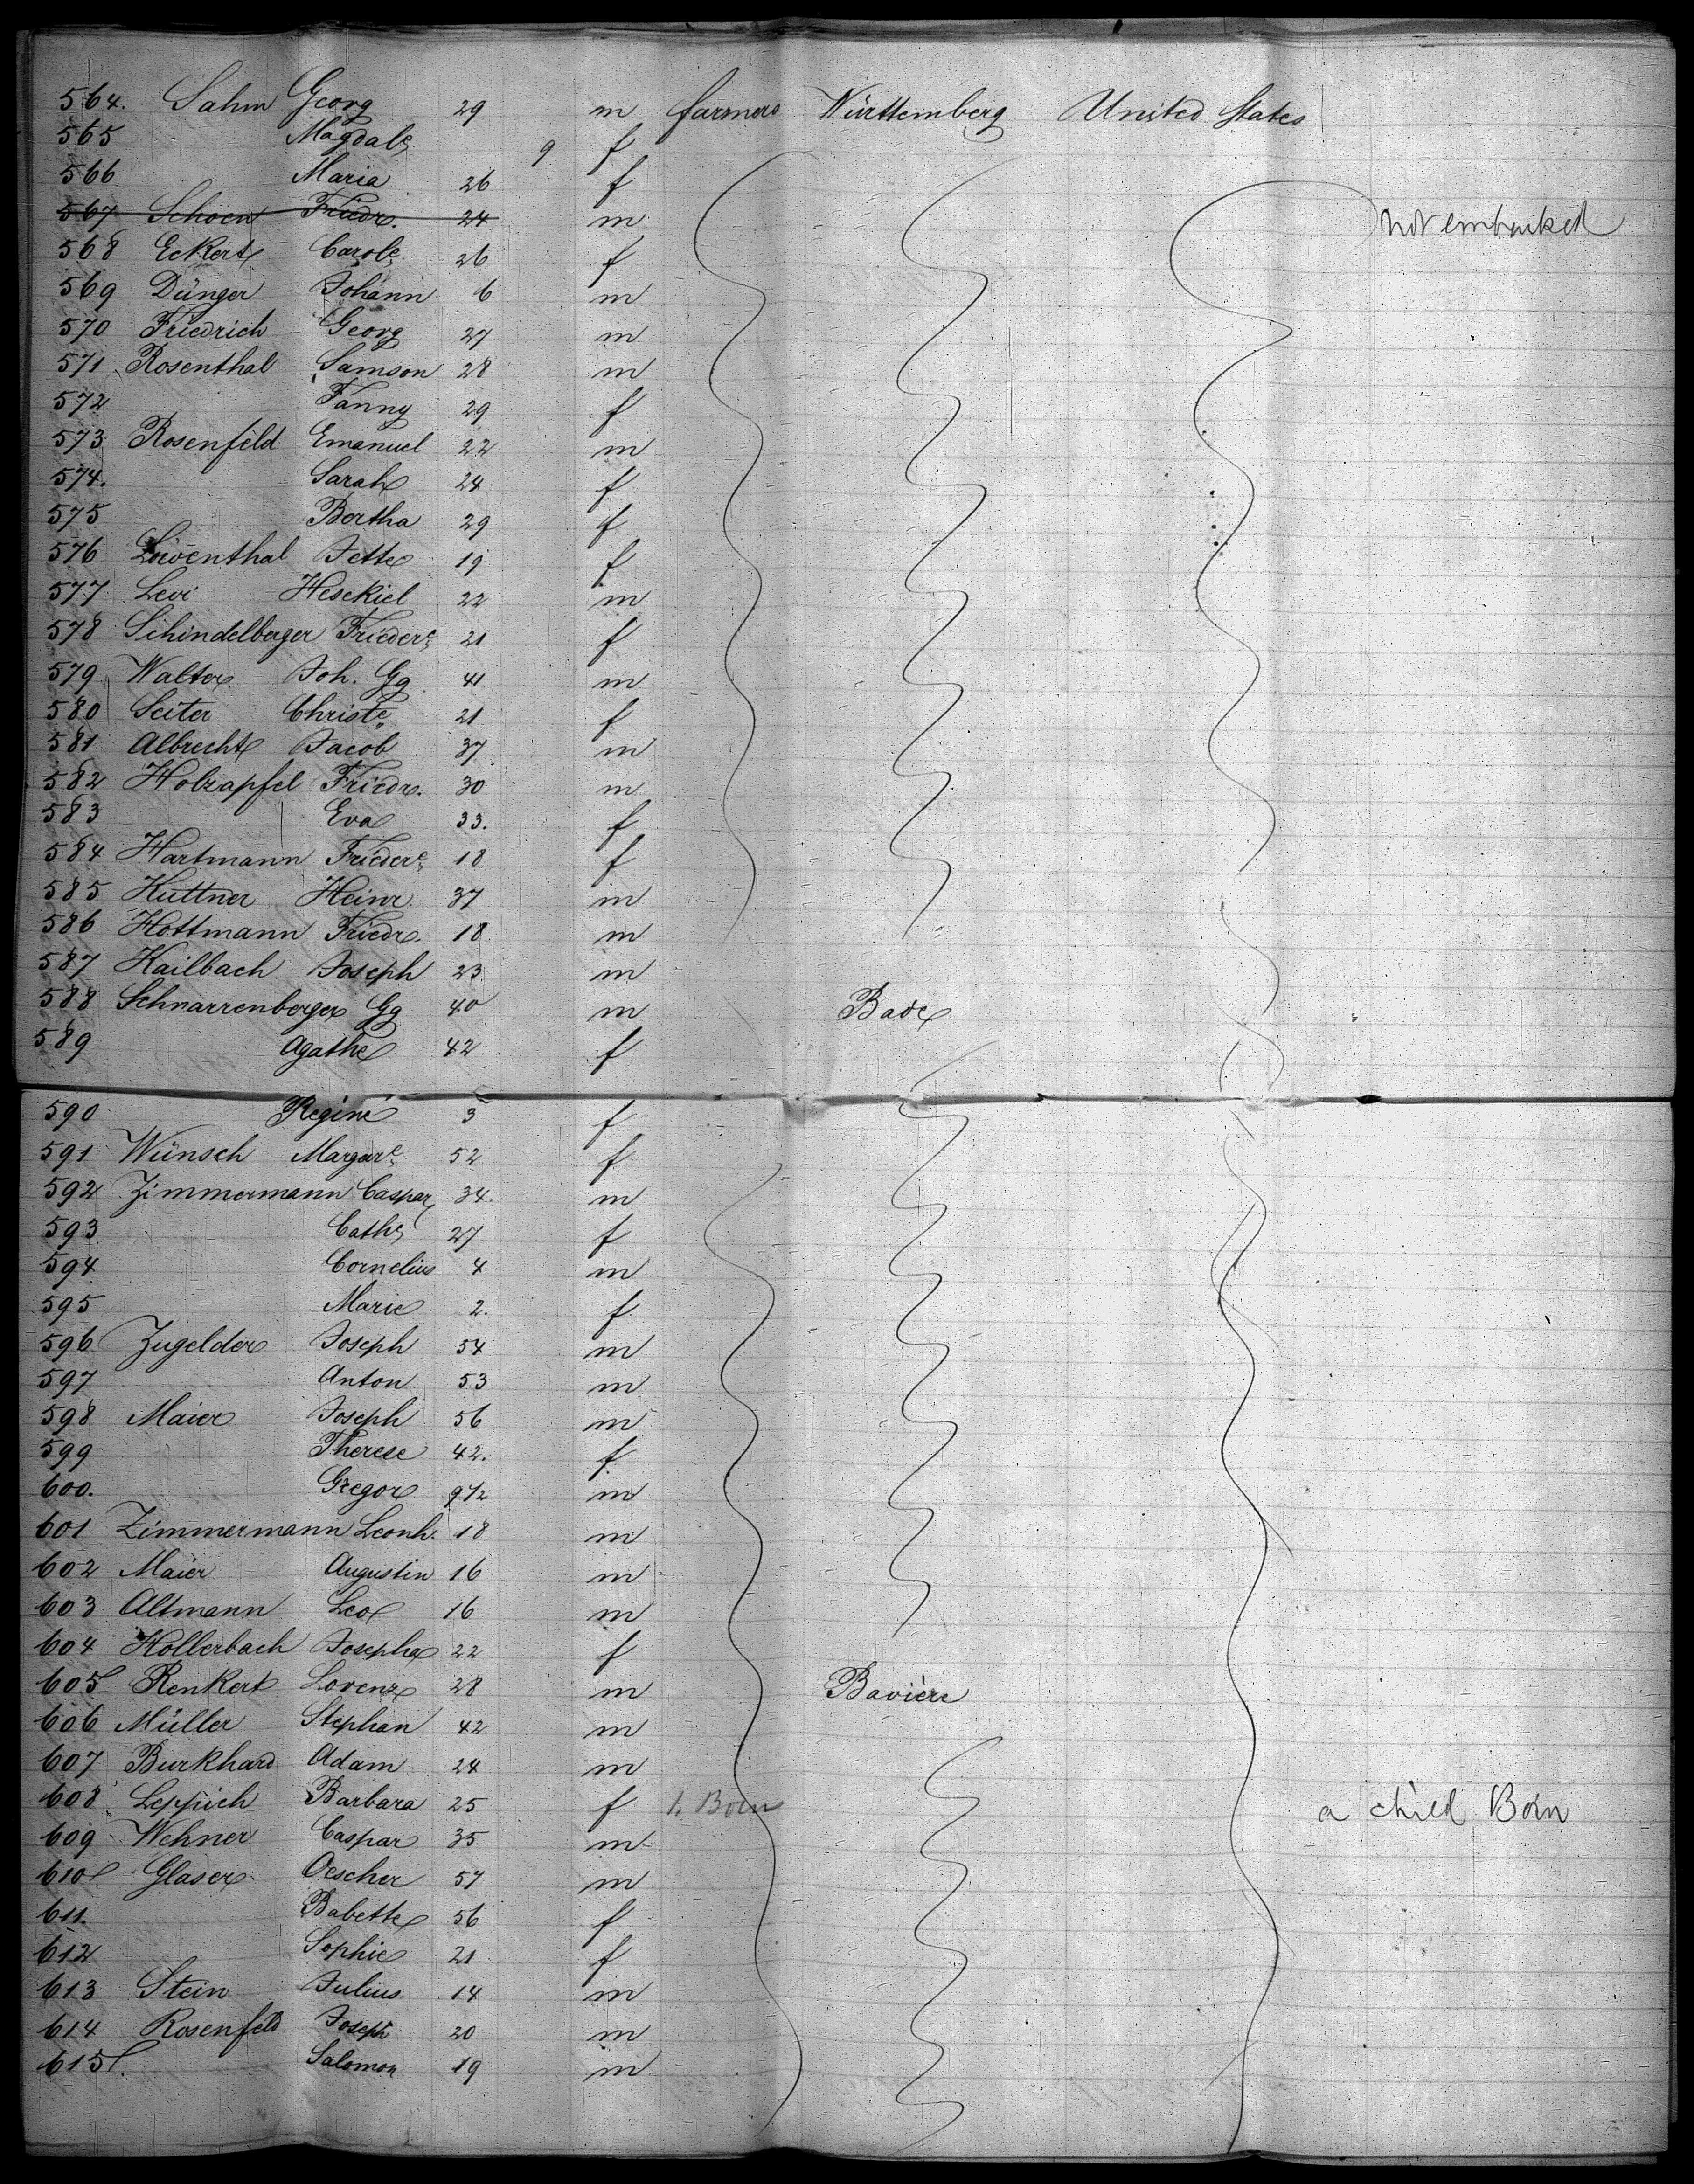 564. Sahm Georg 29 m farmers Württemberg United States
565 Magdale 9 f
566 Maria 26 f
567 Schoen Friedr. 24 m not embarked
568 Eckert Carole 26 f
569 Dünger Johann 6 m
570 Friedrich Georg 27 m
571 Rosenthal Samson 28 m
572 Fanny 29 f
573 Rosenfeld Emanuel 22 m
574. Sarah 24 f
575 Bertha 29 f
576 Löwenthal Jette 19 f
577 Levi Hesekiel 22 m
578 Schindelberger Friedere 21 f
579 Walter Joh. Gg 41 m
580 Seiter Christe 21 f
581 Albrecht Jacob 37 m
582 Holzapfel Friedr. 30 m
583 Eva 33. f
584 Hartmann Friedere 18 f
585 Kuttner Heinr. 37 m
586 Hottmann Friedr. 18 m
587 Kailbach Joseph 23 m
588 Schnarrenberger Gg 40 m Bade
589 Agathe 42 f
590 Regine 3 f
591 Wünsch Margare 52 f
592 Zimmermann Caspar 34. m
593 Cathe 27 f
594 Cornelius 4 m
595 Marie 2. f
596 Zugelder Joseph 54 m
597 Anton 53 m
598 Maier Joseph 56 m
599 Therese 42. f
600. Gregor 9 1/2 m
601 Zimmermann Leonh. 18 m
602 Maier Augustin 16 m
603 Altmann Leo 16 m
604 Hollerbach Josepha 22 f
605 Renkert Lorenz 28 m Bavière
606 Müller Stephan 42 m
607 Burkhard Adam 24 m
608 Leppich Barbara 25 f 1. Born a child Born
609 Wehner Caspar 35 m
610 Glaser Oescher 57 m
611. Babette 56 f
612 Sophie 21 f
613 Stein Julius 14 m
614 Rosenfeld Joseph 20 m
615. Salomon 19 m